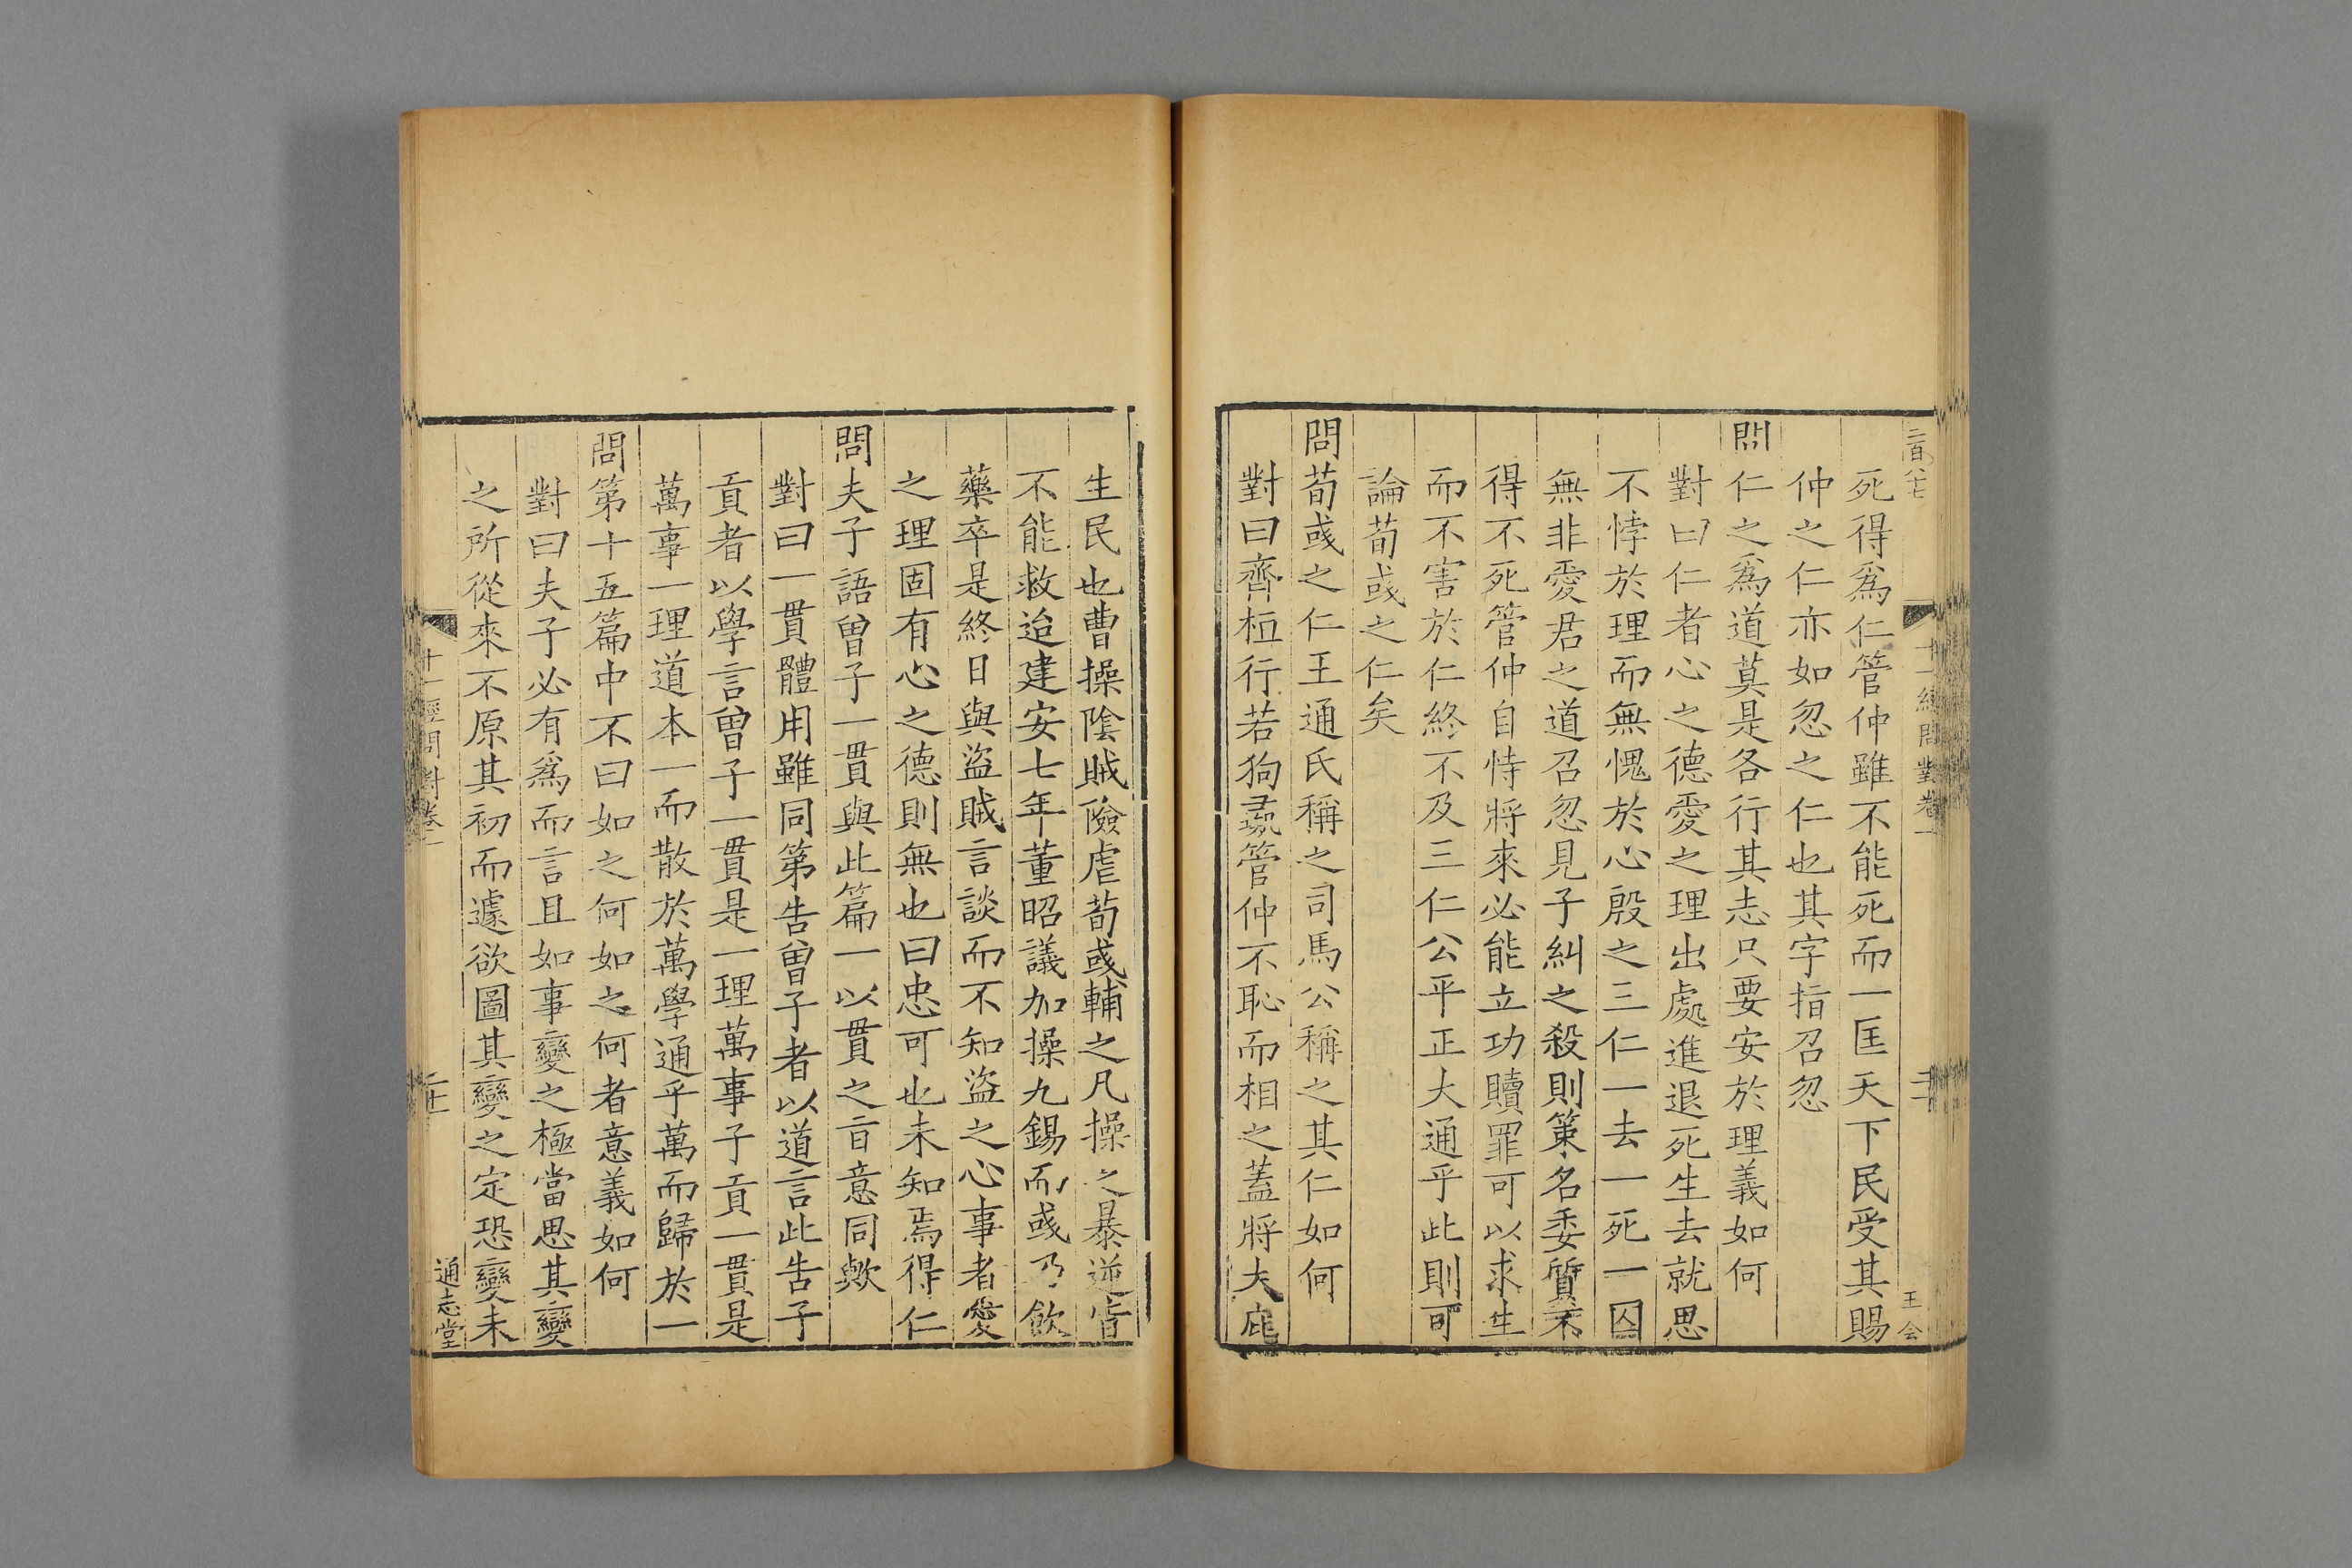 二百八十七
十一經問對卷一
二十一
王公
死得爲仁管仲雖不能死而一匡天下民受其賜
仲之仁亦如忽之仁也其字指召忽
問仁之爲道莫是各行其志只要安於理義如何
對曰仁者心之德愛之理出處進退死生去就思
不悖於理而無愧於心殷之三仁一去一死一囚
無非愛君之道召忽見子糾之殺則策名委質来
得不死管仲自恃將來必能立功贖罪可以求生
而不害於仁終不及三仁公平正大通乎此則可
論荀彧之仁矣
問荀彧之仁王通氏稱之司馬公稱之其仁如何
對曰齊桓行若狗彘管仲不恥而相之蓋將大庇
生民也曹操陰賊險虐荀彧輔之凡操之暴逆皆
不能救迨建安七年董昭議加操九錫而彧乃飲
藥卒是終日與盜賊言談而不知盜之心事者愛
之理固有心之德則無也曰忠可也未知焉得仁
問夫子語曾子一貫與此篇一以貫之旨意同歟
對曰一貫體用雖同第告曾子者以道言此告子
貢者以學言曾子一貫是一理萬事子貢一貫是
萬事一理道本一而散於萬學通乎萬而歸於一
問第十五篇中不曰如之何如之何者意義如何
對曰夫子必有爲而言且如事變之極當思其變
之所從來不原其初而遽欲圖其變之定恐變未
十一經問對卷一
二十一
通志堂